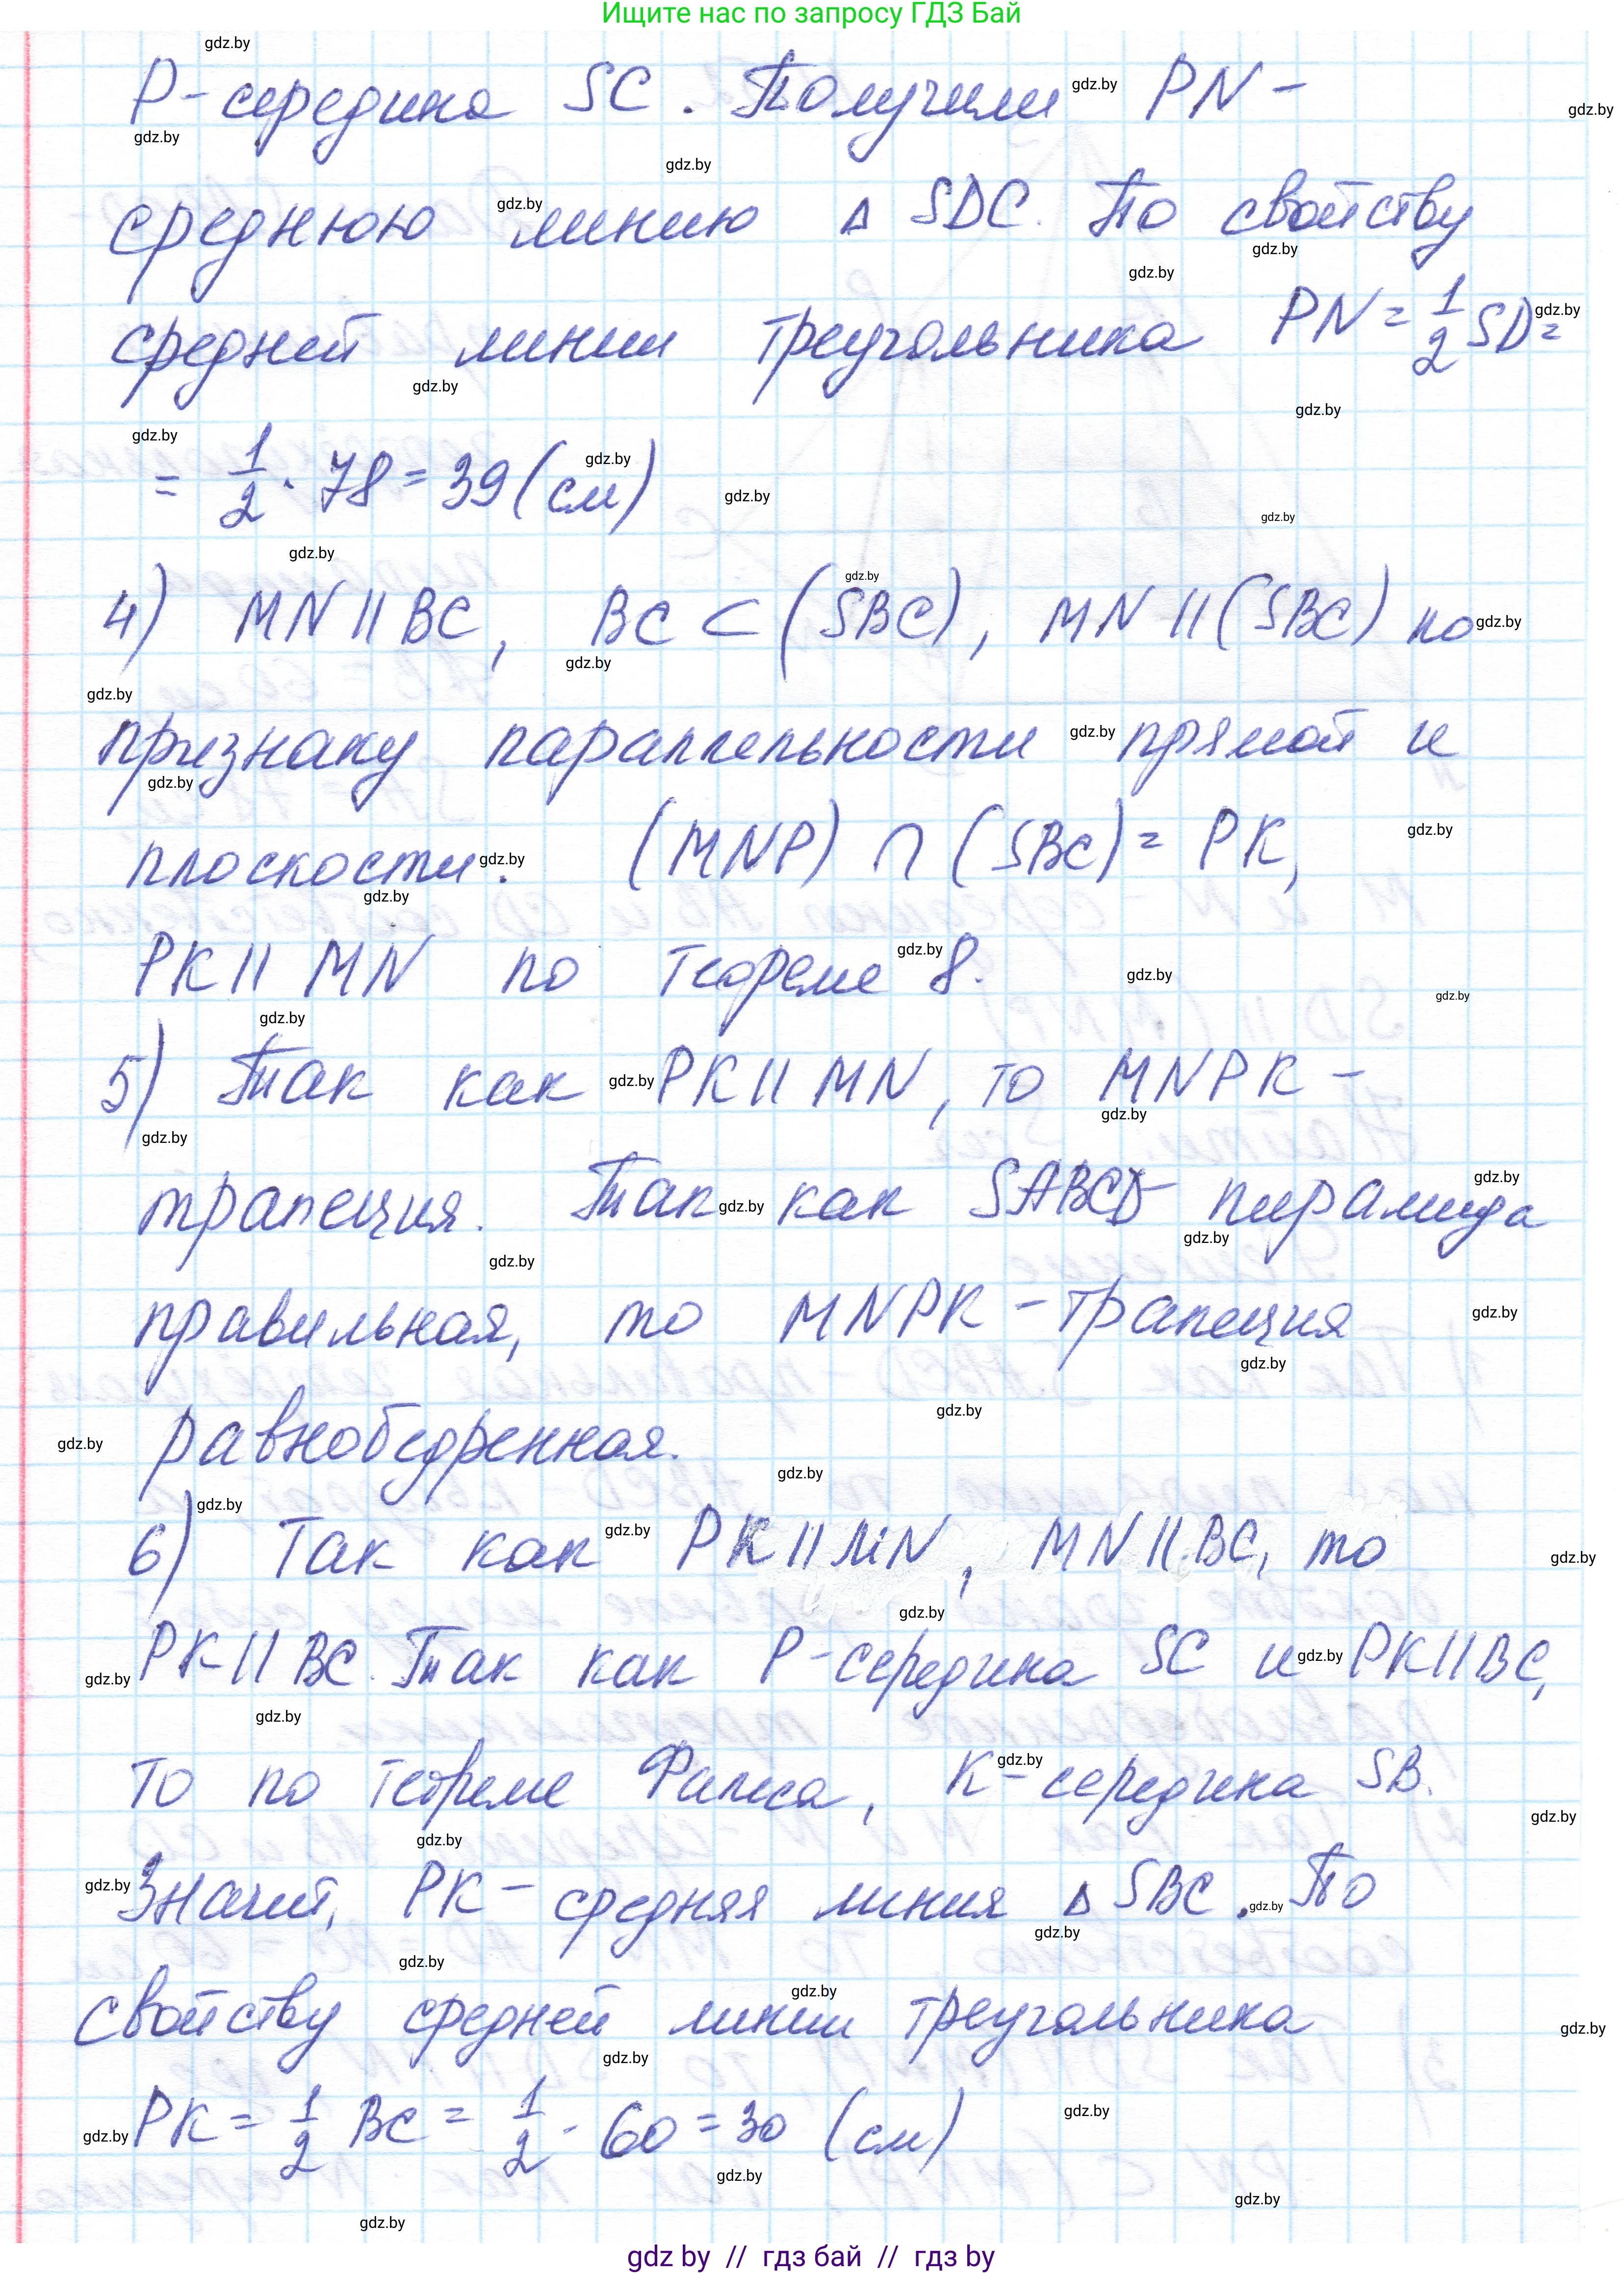 Ищите нас по запросу ГДЗ Бай
P - середина SC. Получили PN -
среднюю линию Δ SDC. По свойству
средней линии треугольника PN = 1/2 SD =
= 1/2 · 78 = 39 (см)
4) MN || BC, BC ⊂ (SBC), MN || (SBC) по
признаку параллельности прямой и
плоскости. (MNP) ∩ (SBC) = PK,
PK || MN по теореме 8.
5) Так как PK || MN, то MNPK -
трапеция. Так как SABCD пирамида
правильная, то MNPK - трапеция
равнобедренная.
6) Так как PK || MN, MN || BC, то
PK || BC. Так как P - середина SC и PK || BC,
то по теореме Фалеса, K - середина SB.
Значит, PK - средняя линия Δ SBC. По
свойству средней линии треугольника
PK = 1/2 BC = 1/2 · 60 = 30 (см)
gdz by // гдз бай // гдз by